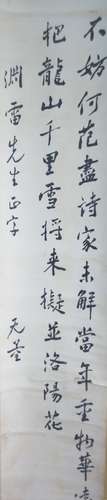 不妨何范盡詩家未解當年重物華遠
把龍山千里雪将来擬並洛陽花
淵雷先生正字
无量